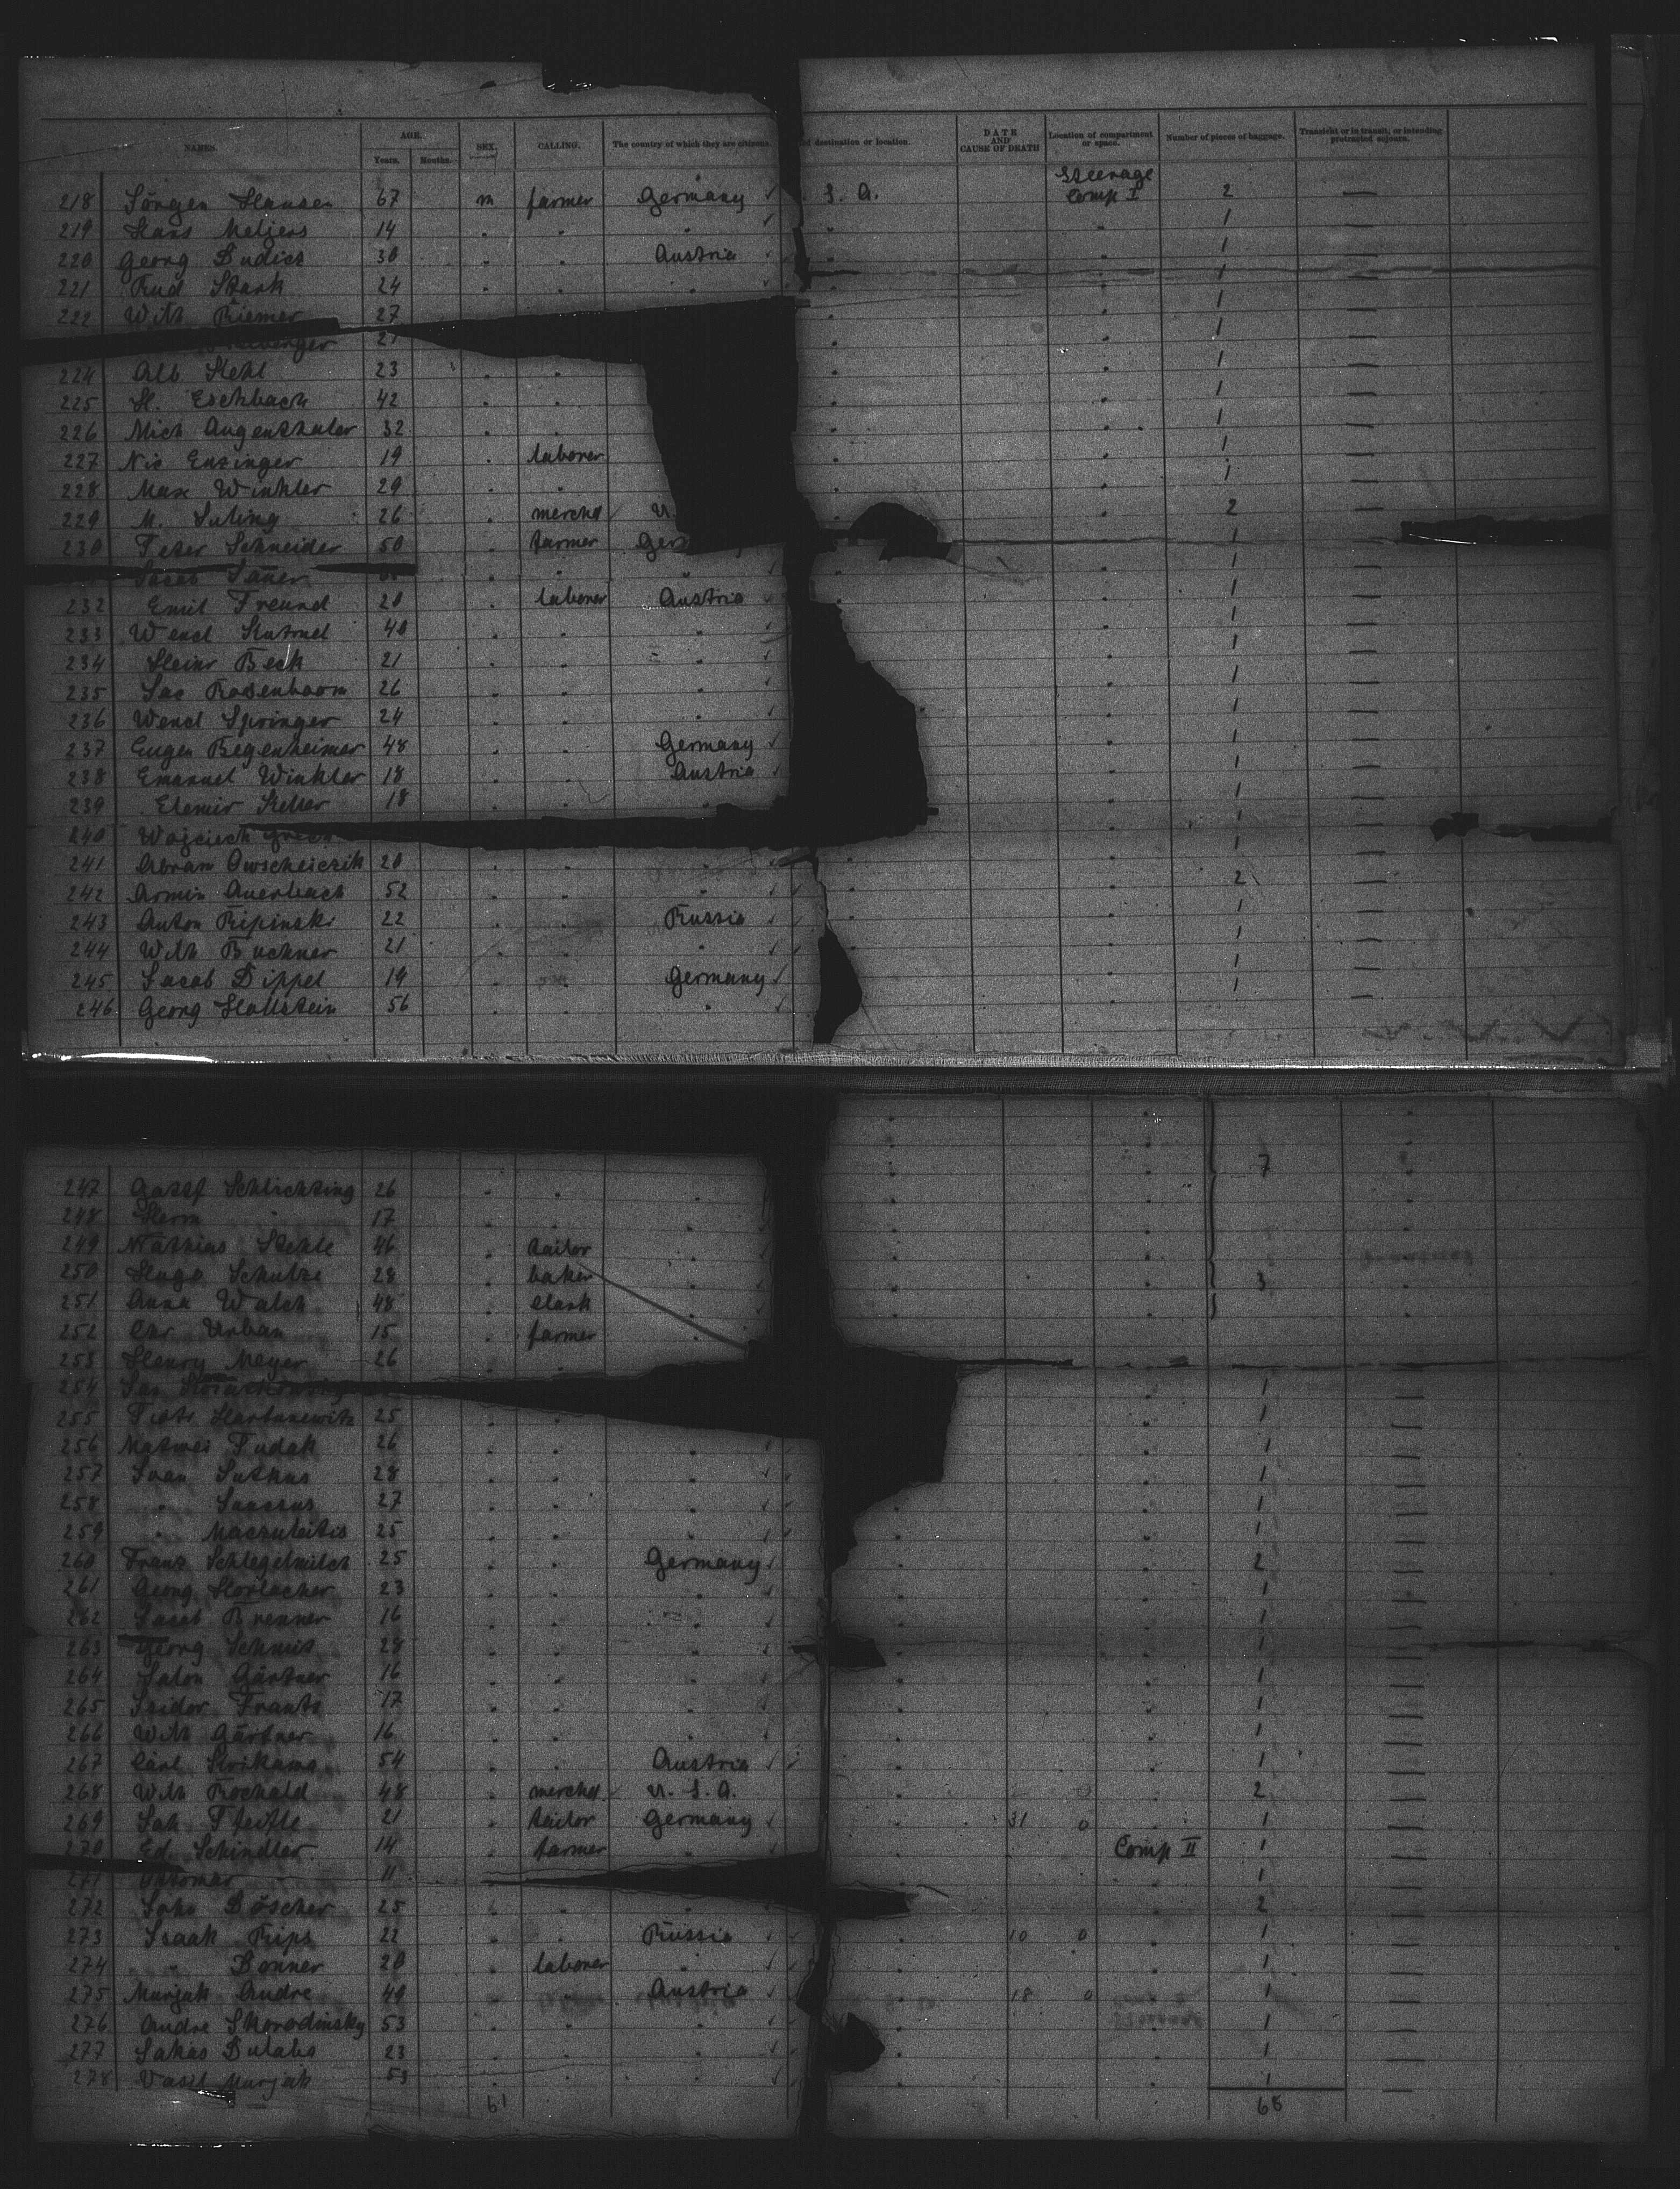 NAMES. AGE. Years. Months. SEX. CALLING. The country of which they are citizens. destination or location. DATE AND CAUSE OF DEATH Location of compartment or space. Number of pieces of baggage. Transient or in transit, or intending protracted sojourn.
218 Jörgen Hansen 67 m farmer Germany S. A. Steerage Comp I 2 —
219 Hans Meljers 14 " " " 1 —
220 Georg Dudics 30 " " Austria 1 —
221 Rud Stark 24 " " " 1 —
222 Wilh Riemer 27 1 —
27 1 —
224 Alb Hehl 23 " " 1 —
225 H. Eschbach 42 " " 1 —
226 Mich Augenthaler 32 " " 1 —
227 Nic Enzinger 19 " laborer 1 —
228 Max Winkler 29 " " 1 —
229 M. Suling 26 " merchd U. 2 —
230 Peter Schneider 50 " farmer Ger 1 —
Jacob Sauer " " " 1 —
232 Emil Freund 20 " laborer Austria 1 —
233 Wencl 40 " " " 1 —
234 Heinr Beck 21 " " " 1 —
235 Jac Rosenbaom 26 " " " 1 —
236 Wencl Springer 24 " " " 1 —
237 Eugen Regenheimer 48 " " Germany 1 —
238 Emanuel Winkler 18 " " Austria 1 —
239 Elemir Keller 18 " " " 1 —
240 Wojciech 1 —
241 Abram Owscheiczik 20 " " " 1 —
242 Armin Auerbach 52 " " " 2 —
243 Anton Ripinski 22 " " Russia 1 —
244 Wilh Buchner 21 " " " 1 —
245 Jacob Dippel 19 " " Germany 1 —
246 Georg Hallstein 56 " " " 1 —
7
247 Gustf Schlichting 26 " " "
248 Herm " 17 " " "
249 Mathias Stehle 46 " tailor "
250 Hugo Schulze 28 " baker " 3
251 Anna Walch 48 " clark "
252 Chr Urban 15 " farmer "
253 Henry Meyer 26 " "
254 Jac 1 —
255 Piotr 25 " " 1 —
256 Matwei Pudak 26 " " " 1 —
257 Ivan Sutkus 28 " " " 1 —
258 " 27 " " " 1 —
259 " Maczuleitis 25 " " " 1 —
260 Franz Schlegelmilch 25 " " Germany 2 —
261 Georg Horlacher 23 " " " 1 —
262 Jacob Brenner 16 " " " 1 —
263 Georg Schmit 28 " " " 1 —
264 Salon Gärtner 16 " " " 1 —
265 Isidor Frantz 17 " " " 1 —
266 Wilh Gärtner 16 " " " 1 —
267 Carl 54 " " Austria 1 —
268 Wilh Rochald 48 " merchd U. S. A. 0 2 —
269 Joh Pfeifle 21 " tailor Germany 31 0 1 —
270 Ed. Schindler 14 " farmer " Comp II 1 —
271 Ottomar 11 1 —
272 Döscher 25 " " " 2 —
273 Isaak Rips 22 " " Russia 10 0 1 —
274 " Bonner 20 " laborer " 1 —
275 Murjak Andre 49 " " Austria 18 0 1 —
276 Andre Skorodinsky 53 " " " 1 —
277 Lukas Dulaba 23 " " " 1 —
278 Vasil Murjak 53 " " " 1 —
61 68